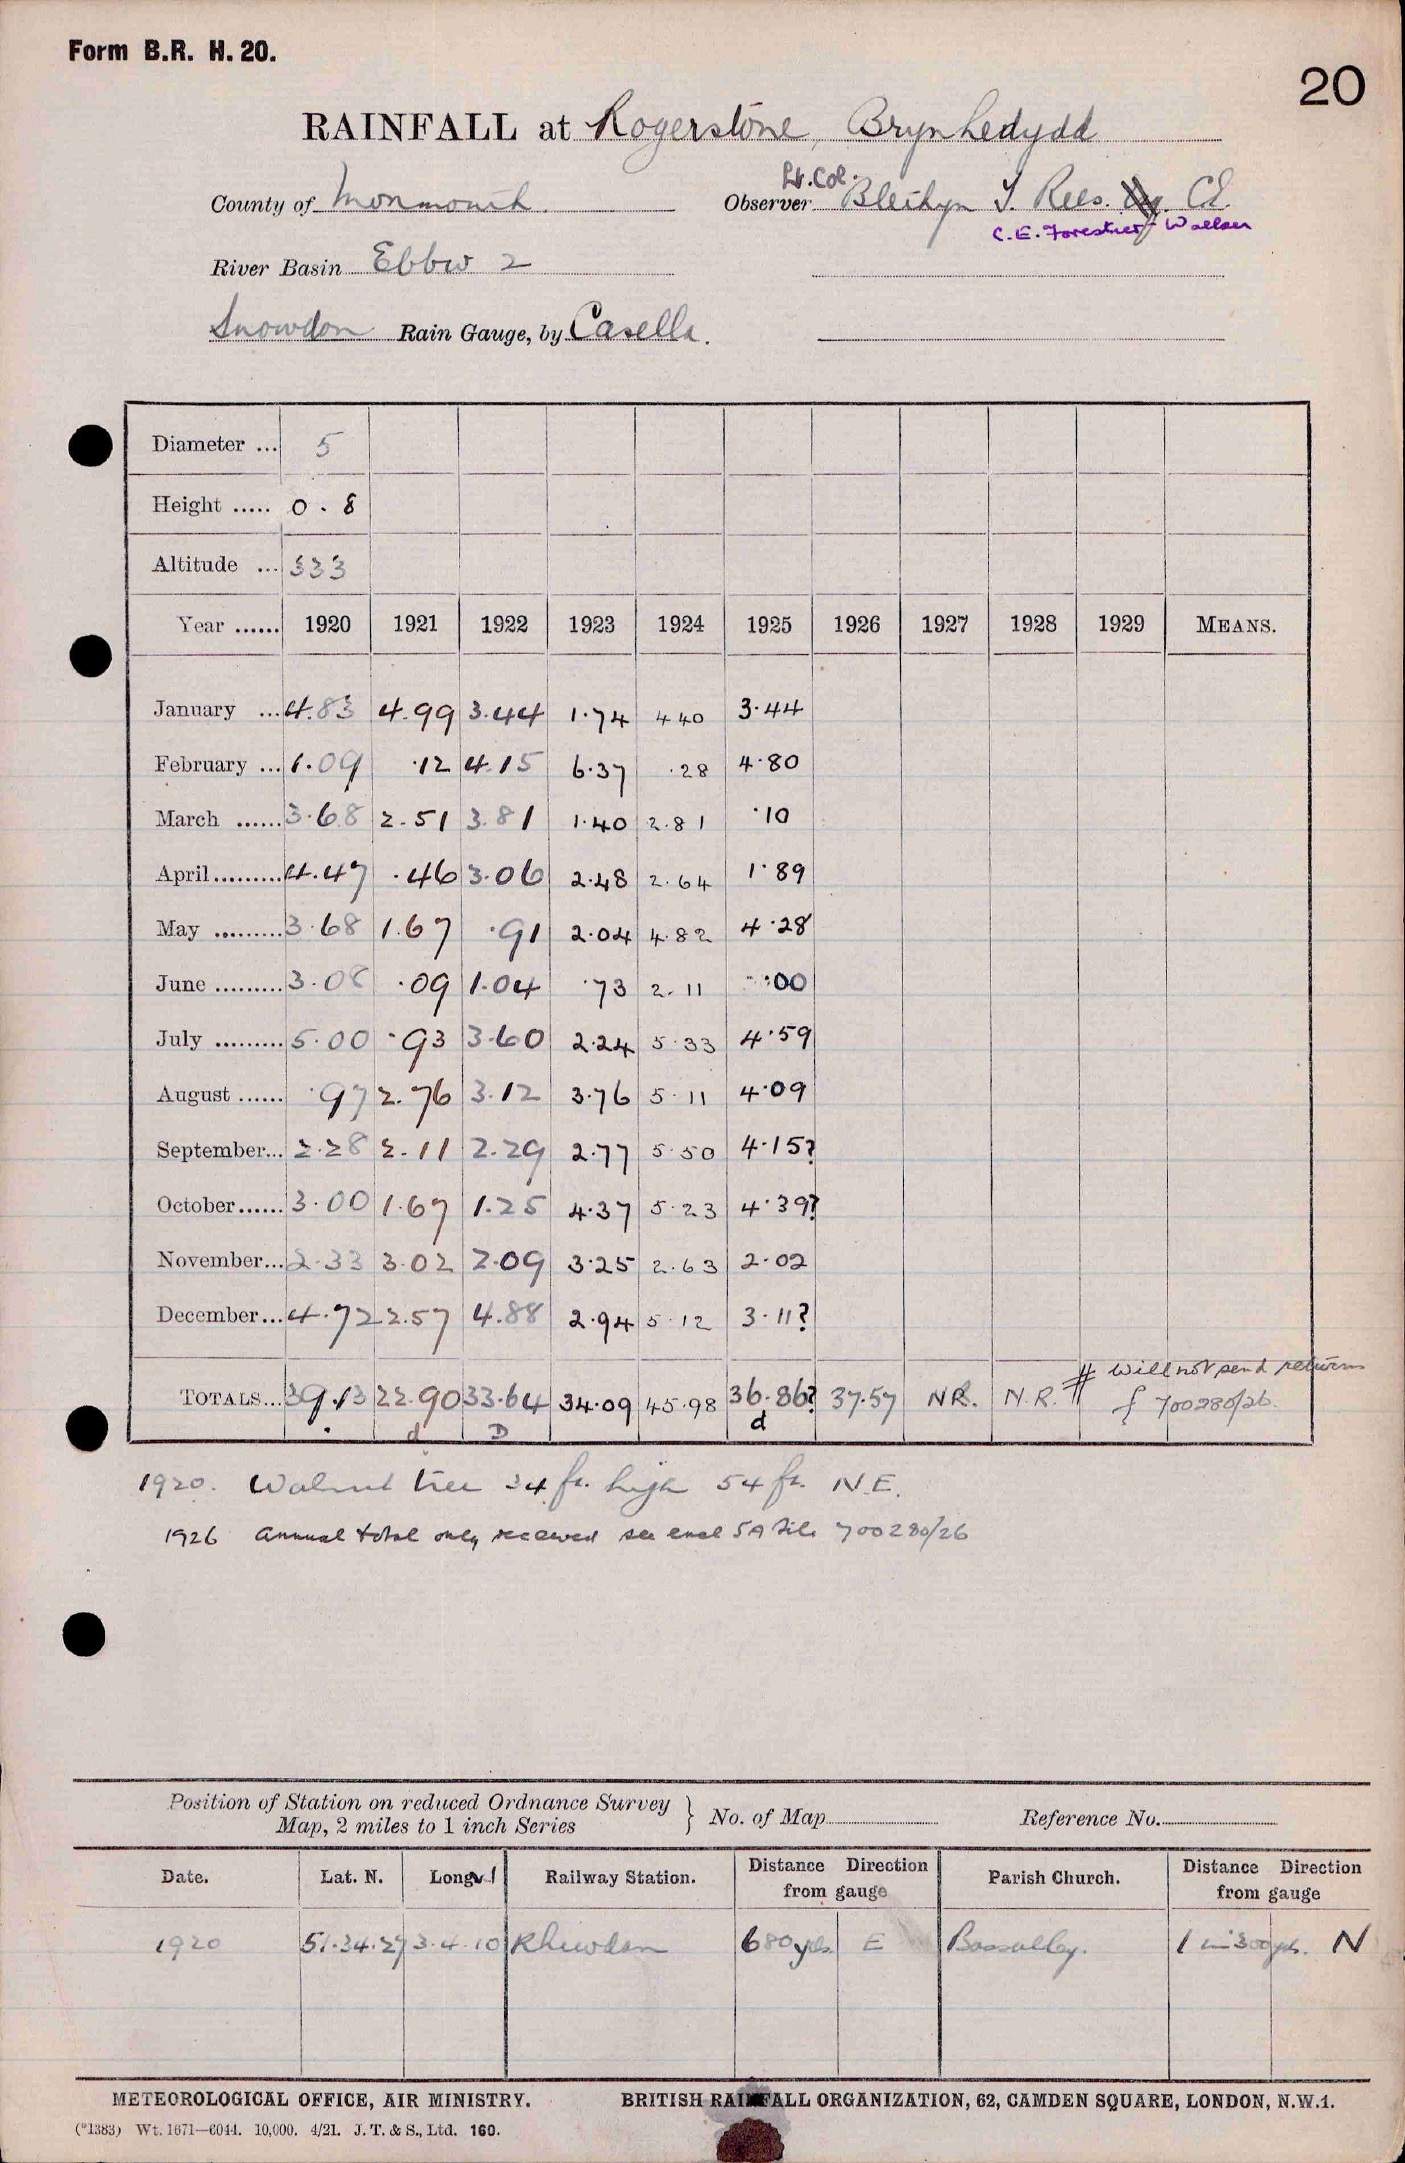 Form B.R. H. 20.
20
RAINFALL at Rogerstone, Brynhedydd
Lt. Col.
County of Monmouth. Observer Blethyn T. Rees. Esq. C.E.
C. E. Forestier-Walker
River Basin Ebbw 2
Snowdon Rain Gauge, by Casella.
Diameter ... 5
Height ..... 0.8
Altitude ... 333
Year ...... 1920 1921 1922 1923 1924 1925 1926 1927 1928 1929 MEANS.
January ... 4.83 4.99 3.44 1.74 4 40 3.44
February ... 1.09 .12 4.15 6.37 .28 4.80
March ...... 3.68 2.51 3.81 1.40 2.81 .10
April ......... 4.47 .46 3.06 2.48 2.64 1.89
May ......... 3.68 1.67 .91 2.04 4.82 4.28
June ......... 3.08 .09 1.04 .73 2.11 .00
July ......... 5.00 .93 3.60 2.24 5.33 4.59
August ...... .97 2.76 3.12 3.76 5.11 4.09
September... 2.28 2.11 2.29 2.77 5.50 4.15?
October...... 3.00 1.67 1.25 4.37 5.23 4.39?
November... 2.33 3.02 2.09 3.25 2.63 2.02
December... 4.72 2.57 4.88 2.94 5.12 3.11?
# Will not send returns
TOTALS... 39.13 22.90 33.64 34.09 45.98 36.86? 37.57 N.R. N.R. { 700280/26.
d D d
1920. Walnut tree 34 ft. high 54 ft. N.E.
1926 Annual total only received see encl 5A file 700280/26
Position of Station on reduced Ordnance Survey
Map, 2 miles to 1 inch Series } No. of Map Reference No.
Date. Lat. N. Long. W Railway Station. Distance Direction from gauge Parish Church. Distance Direction from gauge
1920 51.34.27 3.4.10 Rhiwderin 680 yds. E Bassalleg. 1 m 300 yds. N
METEOROLOGICAL OFFICE, AIR MINISTRY. BRITISH RAINFALL ORGANIZATION, 62, CAMDEN SQUARE, LONDON, N.W.1.
(*1383) Wt. 1671—6044. 10,000. 4/21. J. T. & S., Ltd. 160.